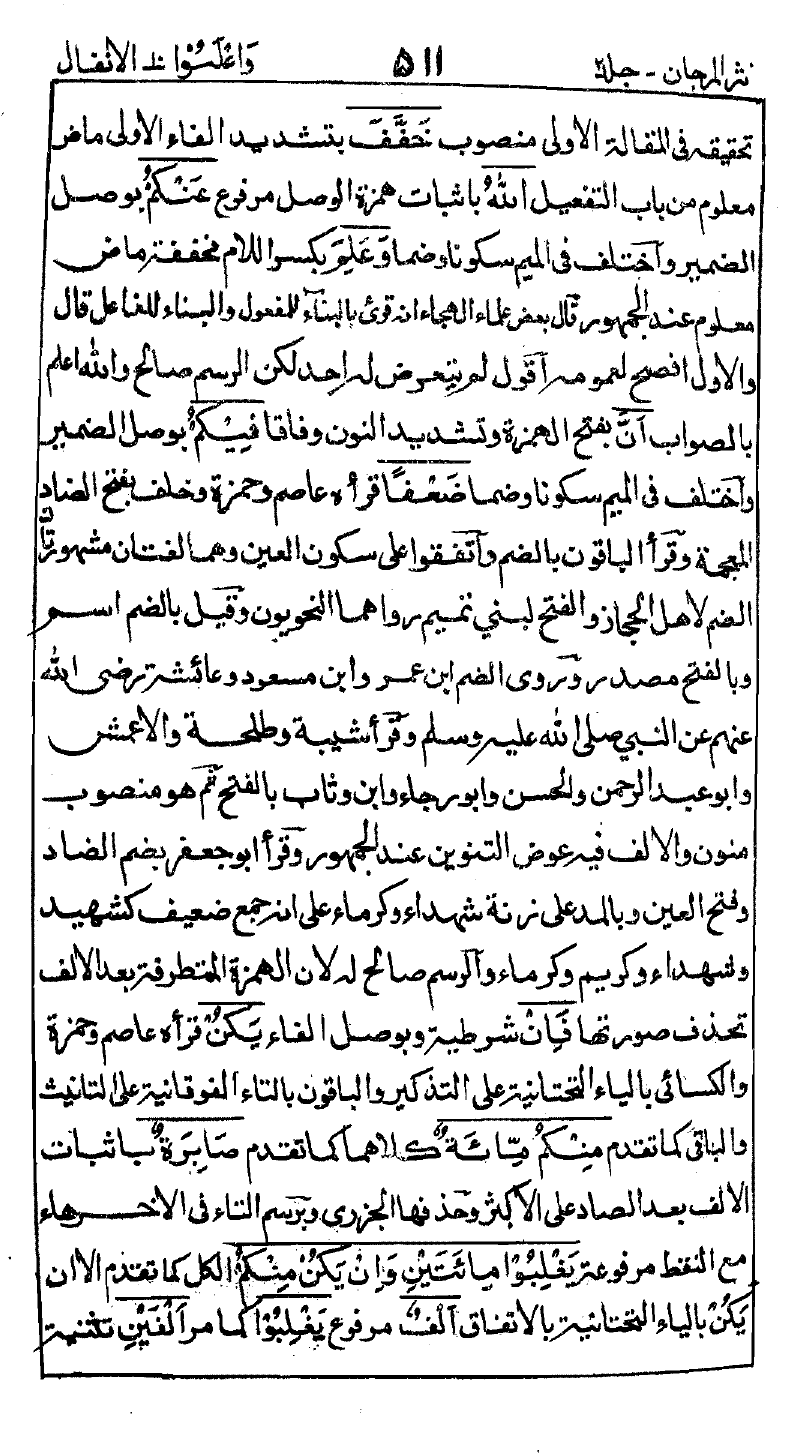 نثر المرجان - جلد ٢ ٥١١ وَاعْلَمُوْا ١٠ الانفال
تحقيقه فى المقالة الاولى منصوب خَفَّفَ بتشديد الفاء الاولى ماض
معلوم من باب التفعيل اللهُ باثبات همزة الوصل مرفوع عَنْكُمْ بوصل
الضمير واختلف فى الميم سكونا وضما وَعَلِمَ بكسر اللام مخففة ماض
معلوم عند الجمهور قال بعض علماء الهجاء انه قرئ بالبناء للمفعول والبناء للفاعل قال
والاول افصح لعمومه اقول لم يتعرض له احد لكن الرسم صالح والله اعلم
بالصواب اَنَّ بفتح الهمزة وتشديد النون وفاقا فِيْكُمْ بوصل الضمير
واختلف فى الميم سكونا وضما ضَعْفًا قرأه عاصم وحمزة وخلف بفتح الضاد
المعجمة وقرأ الباقون بالضم واتفقوا على سكون العين وهما لغتان مشهورتان
الضم لاهل الحجاز والفتح لبني تميم رواهما النحويون وقيل بالضم اسم
وبالفتح مصدر وروى الضم ابن عمر وابن مسعود وعائشة رضى الله
عنهم عن النبي صلى الله عليه وسلم وقرأ شيبة وطلحة والاعمش
وابو عبد الرحمن والحسن وابو رجاء وابن وثاب بالفتح ثم هو منصوب
منون والالف فيه عوض التنوين عند الجمهور وقرأ ابو جعفر بضم الضاد
وفتح العين وبالمد على زنة شهداء وكرماء على انه جمع ضعيف كشهيد
وشهداء وكريم وكرماء والرسم صالح له لان الهمزة المتطرفة بعد الالف
تحذف صورتها فَاِنْ شرطية وبوصل الفاء يَكُنْ قرأه عاصم وحمزة
والكسائى بالياء التحتانية على التذكير والباقون بالتاء الفوقانية على التانيث
والباقى كما تقدم مِنْكُمْ مِّائَةٌ كلاهما كما تقدم صَابِرَةٌ باثبات
الالف بعد الصاد على الاكثر وحذفها الجزرى وبرسم التاء فى الاخر هاء
مع النقط مرفوعة يَغْلِبُوْا مِائَتَيْنِ وَاِنْ يَكُنْ مِنْكُمْ الكل كما تقدم الا ان
يَكُنْ بالياء التحتانية بالاتفاق اَلْفٌ مرفوع يَغْلِبُوْا كما مر اَلْفَيْنِ تثنية